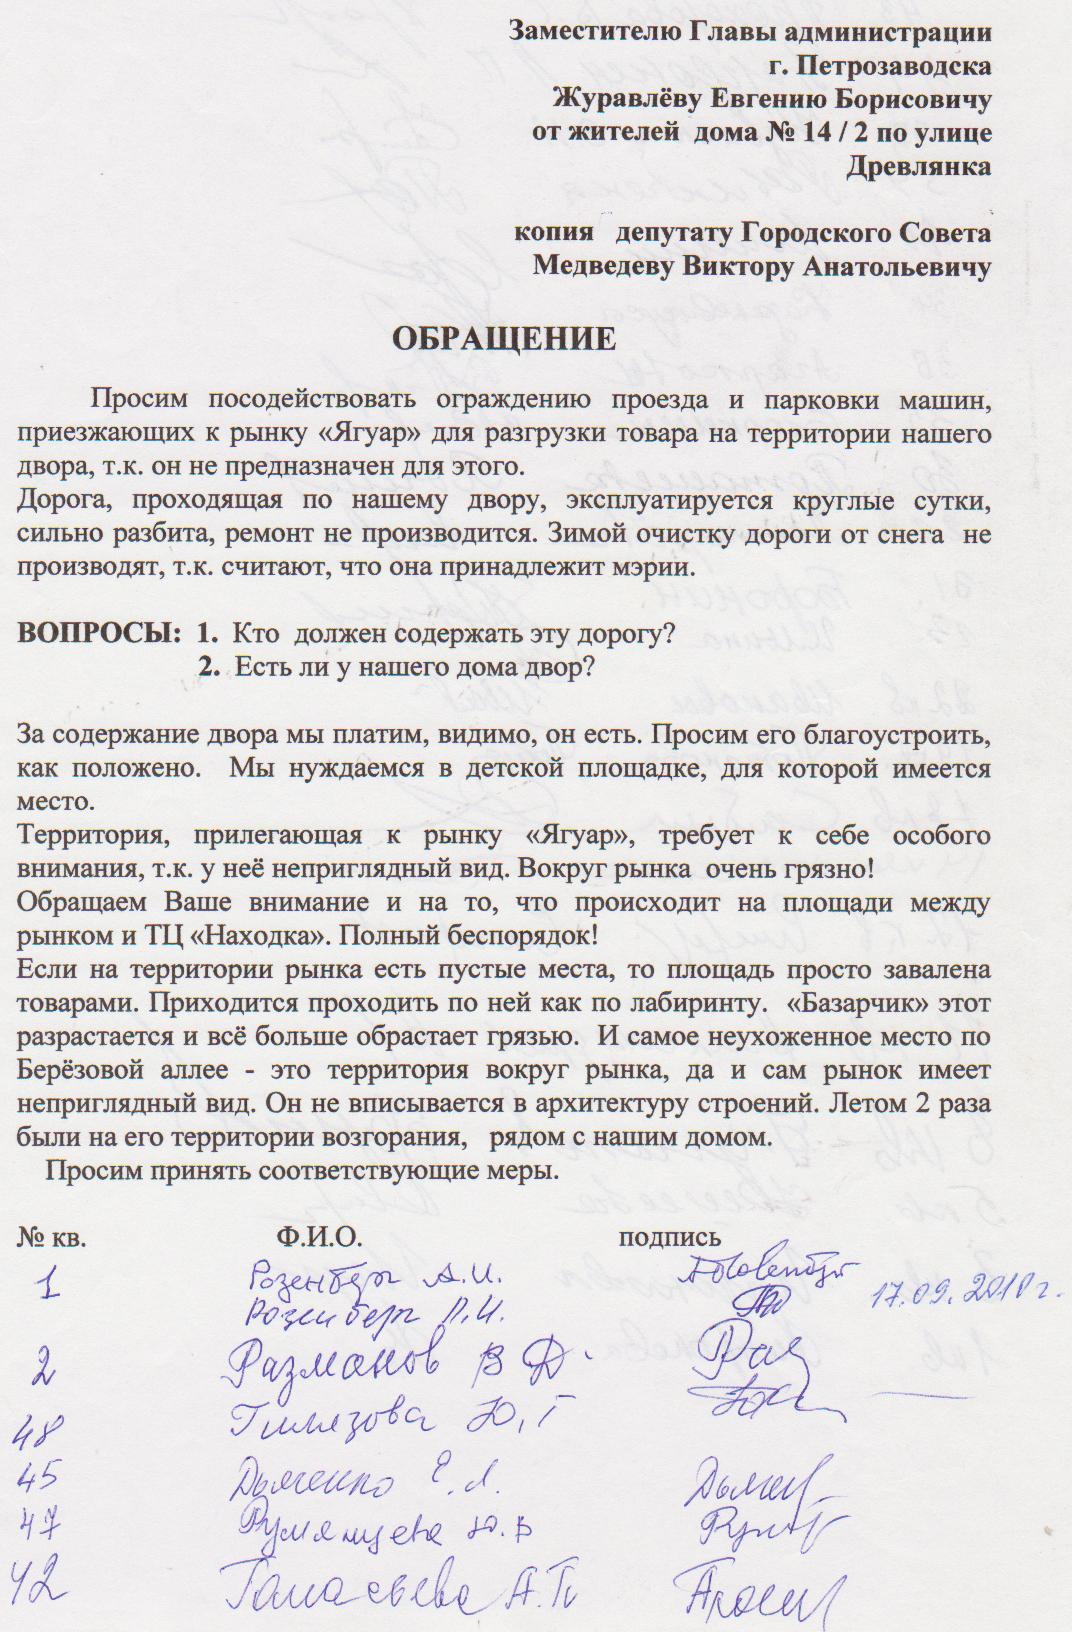 Заместителю Главы администрации
г. Петрозаводска
Журавлёву Евгению Борисовичу
от жителей дома № 14 / 2 по улице
Древлянка
копия депутату Городского Совета
Медведеву Виктору Анатольевичу
ОБРАЩЕНИЕ
Просим посодействовать ограждению проезда и парковки машин,
приезжающих к рынку «Ягуар» для разгрузки товара на территории нашего
двора, т.к. он не предназначен для этого.
Дорога, проходящая по нашему двору, эксплуатируется круглые сутки,
сильно разбита, ремонт не производится. Зимой очистку дороги от снега не
производят, т.к. считают, что она принадлежит мэрии.
ВОПРОСЫ: 1. Кто должен содержать эту дорогу?
2. Есть ли у нашего дома двор?
За содержание двора мы платим, видимо, он есть. Просим его благоустроить,
как положено. Мы нуждаемся в детской площадке, для которой имеется
место.
Территория, прилегающая к рынку «Ягуар», требует к себе особого
внимания, т.к. у неё неприглядный вид. Вокруг рынка очень грязно!
Обращаем Ваше внимание и на то, что происходит на площади между
рынком и ТЦ «Находка». Полный беспорядок!
Если на территории рынка есть пустые места, то площадь просто завалена
товарами. Приходится проходить по ней как по лабиринту. «Базарчик» этот
разрастается и всё больше обрастает грязью. И самое неухоженное место по
Берёзовой аллее - это территория вокруг рынка, да и сам рынок имеет
неприглядный вид. Он не вписывается в архитектуру строений. Летом 2 раза
были на его территории возгорания, рядом с нашим домом.
Просим принять соответствующие меры.
№ кв. Ф.И.О. подпись
1 Розенберг А.И. 17.09.2010 г.
Розенберг
2 Размонов В Д.
48 Ю.Г
45 Дыменко Е.Л.
47 Румянцева Ю.В
42 А.П